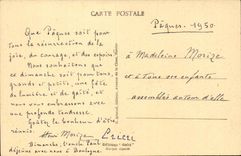 CARTE POSTALE
Que Pâques soit pour
tous la résurrection de la
joie, du courage, et des espoirs
Nous souhaitons que
ce dimanche soit pour tous,
grands et petits, une fête
de lumière et de gaîté, et
nous vous embrassons avec
une profonde tendresse.
Goûtez le bonheur d'être
réunis.
Henri Morizean
Dimanche,
avec nous à Boulogne
Pâques 1950
à Madeleine Morize
et à tous ses enfants
assemblés autour d'elle